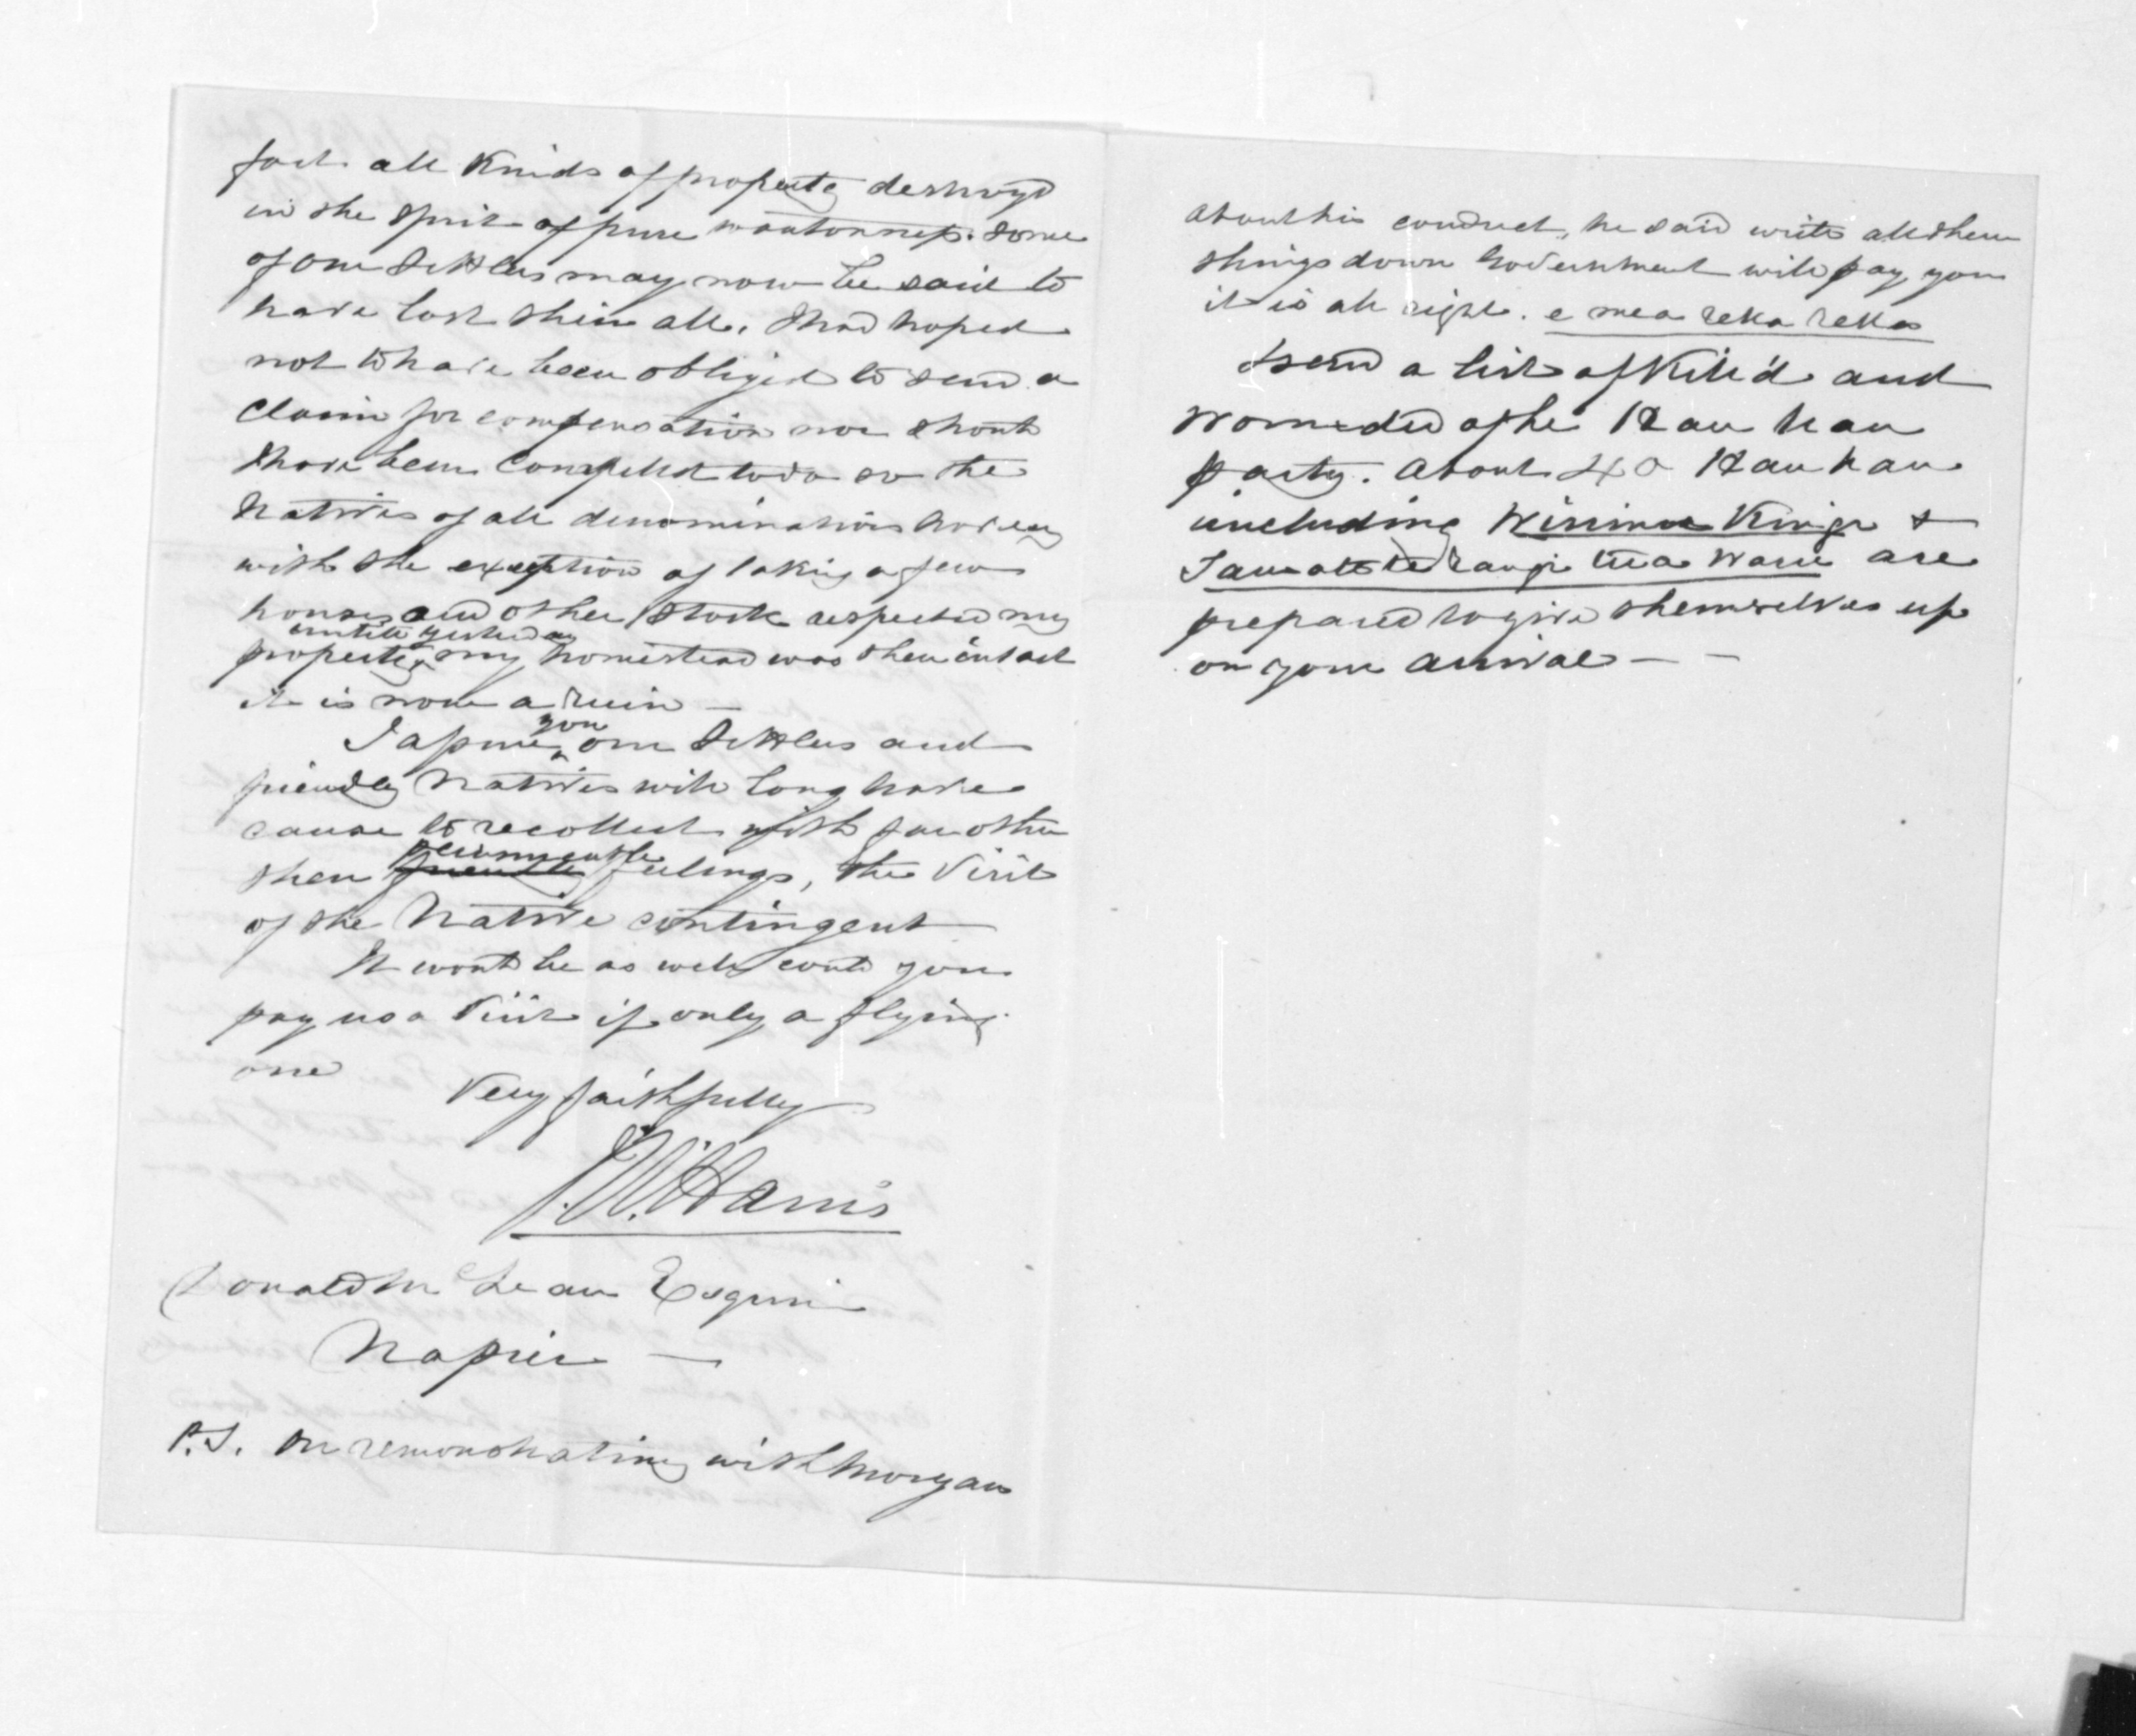 fact all kinds of property destroyd
in the spirit of pure wantonness. Some
of our Settlers may now be said to
have lost their all. I had hoped
not to have been obliged to send a
Claim for compensation nor should
I have been compelled to do so the
Natives of all denominations having
with the exception of taking a few
horses and other stock respected my
property until yesterday my homestead was then intact
it is now a ruin —
I assure you our Settlers and
friendly Natives will long have
cause to recollect with far other
then feelings, the Visit
of the Native contingent
It would be as well could you
pay us a Visit if only a flying
one
Very faithfully
J. W. Harris
Donald McLean Esquire
Napier —
P.S. On remonstrating with Morgan
about his conduct, he said write all them
things down Government will pay you
it is all right. e mea reka reka
I send a list of Kill'd and
Wounded of he Hau hau
party. About 40 Hau hau
including Wirimu Kingi &
are
prepared to give themselves up
on your arrival — —